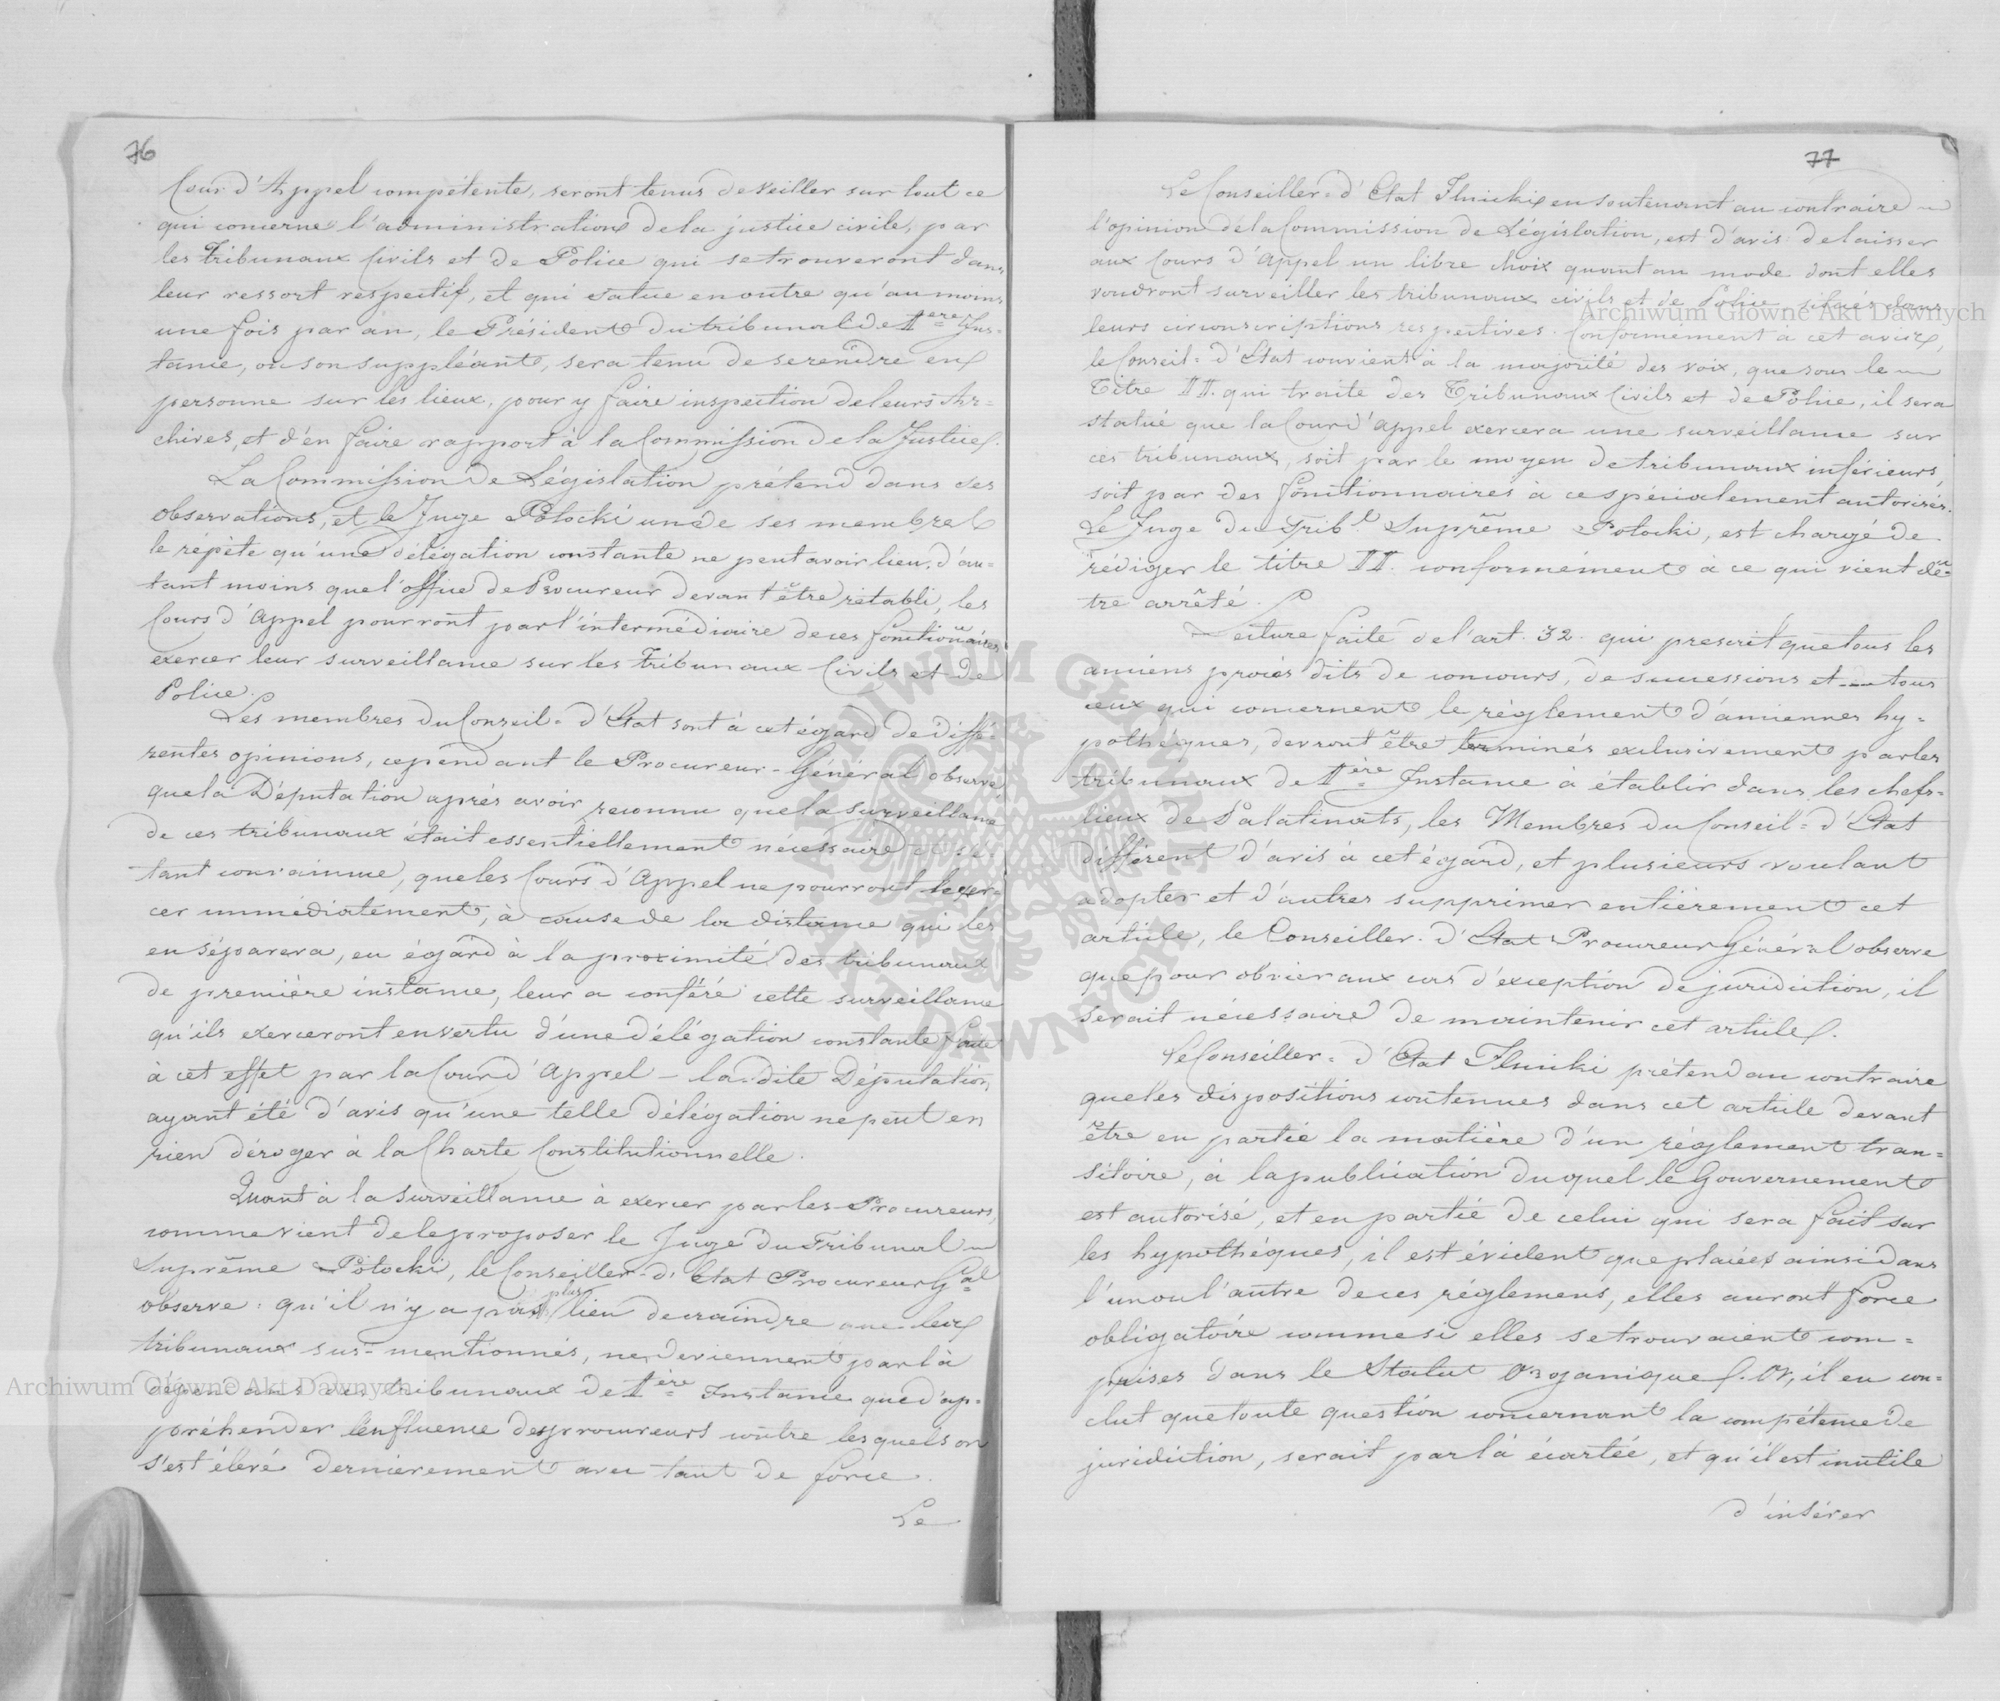 76
Cour d'Appel compétente, seront tenus de veiller sur tout ce
qui concerne l'administration de la justice civile, par
les Tribunaux Civils et de Police qui se trouveront dans
leur ressort respectif, et qui statue en outre qu'au moins
une fois par an, le Président du tribunal de 1ère Ins=
tance, ou son suppléant, sera tenu de se rendre en
personne sur les lieux, pour y faire inspection de leurs Ar=
chives, et d'en faire rapport à la Commission de la Justice.
La Commission de Législation prétend dans ses
observations, et le Juge Potocki un de ses membres
le répète qu'une délégation constante ne peut avoir lieu, d'au=
tant moins que l'office de Procureur devant être rétabli, les
Cours d'Appel pourront par l'intermédiaire de ces fonctionaires
exercer leur surveillance sur les Tribunaux Civils et de
Police.
Les membres du Conseil=d'Etat sont à cet égard de diffé=
rentes opinions, cependant le Procureur-Général observe
que la Députation après avoir reconnu que la surveillance
de ces tribunaux était essentiellement nécessaire et s'é=
tant convaincue, que les Cours d'Appel ne pourront l'exer=
cer immédiatement, à cause de la distance qui les
en séparera, eu égard à la proximité des tribunaux
de première instance, leur a conféré cette surveillance
qu'ils exerceront en vertu d'une délégation constante faite
à cet effet par la Cour d'Appel – la dite Députation,
ayant été d'avis qu'une telle délégation ne peut en
rien déroger à la Charte Constitutionnelle.
Quant à la surveillance à exercer par les Procureurs,
comme vient de le proposer le Juge du Tribunal
Suprême Potocki, le Conseiller d'Etat Procureur Gal
observe: qu'il n'y a pas plus lieu de craindre que les
tribunaux sus=mentionnés, ne deviennent par là
dépendans des tribunaux de 1ère Instance que d'ap=
préhender l'influence des procureurs contre lesquels on
s'est élevé dernièrement avec tant de force.
Le
77
Le Conseiller=d'Etat Ilnicki en soutenant au contraire
l'opinion de la Commission de Législation, est d'avis de laisser
aux Cours d'Appel un libre choix quant au mode dont elles
voudront surveiller les tribunaux civils et de Police situés dans
leurs circonscriptions respectives. Conformément à cet avis,
le Conseil=d'Etat convient à la majorité des voix, que sous le
Titre II. qui traite des Tribunaux Civils et de Police, il sera
statué que la Cour d'Appel exercera une surveillance sur
ces tribunaux, soit par le moyen de tribunaux inférieurs,
soit par des fonctionnaires à ce spécialement autorisés.
Le Juge du Tribl Suprême Potocki, est chargé de
rédiger le titre II. conformément à ce qui vient d'ê=
tre arrêté.
Lecture faite de l'art. 32. qui prescrit que tous les
anciens procès dits de concours, de successions et tous
ceux qui concernent le règlement d'anciennes hy=
pothèques, devront être terminés exclusivement par les
tribunaux de 1ère Instance à établir dans les chefs=
lieux de Palatinats, les Membres du Conseil=d'Etat
diffèrent d'avis à cet égard, et plusieurs voulant
adopter et d'autres supprimer entièrement cet
article, le Conseiller d'Etat Procureur Général observe
que pour obvier aux cas d'exception de juridiction, il
serait nécessaire de maintenir cet article.
Le Conseiller=d'Etat Ilnicki prétend au contraire
que les dispositions contenues dans cet article devant
être en partie la matière d'un règlement tran=
sitoire, à la publication duquel le Gouvernement
est autorisé, et en partie de celui qui sera fait sur
les hypothèques, il est évident que placées ainsi dans
l'un ou l'autre de ces réglemens, elles auront force
obligatoire comme si elles se trouvaient com=
prises dans le Statut Organique. Or, il en con=
clut que toute question concernant la compétence de
juridiction, serait par là écartée, et qu'il est inutile
d'insérer
Archiwum Główne Akt Dawnych
Archiwum Główne Akt Dawnych
ARCHIWUM GŁÓWNE AKT DAWNYCH